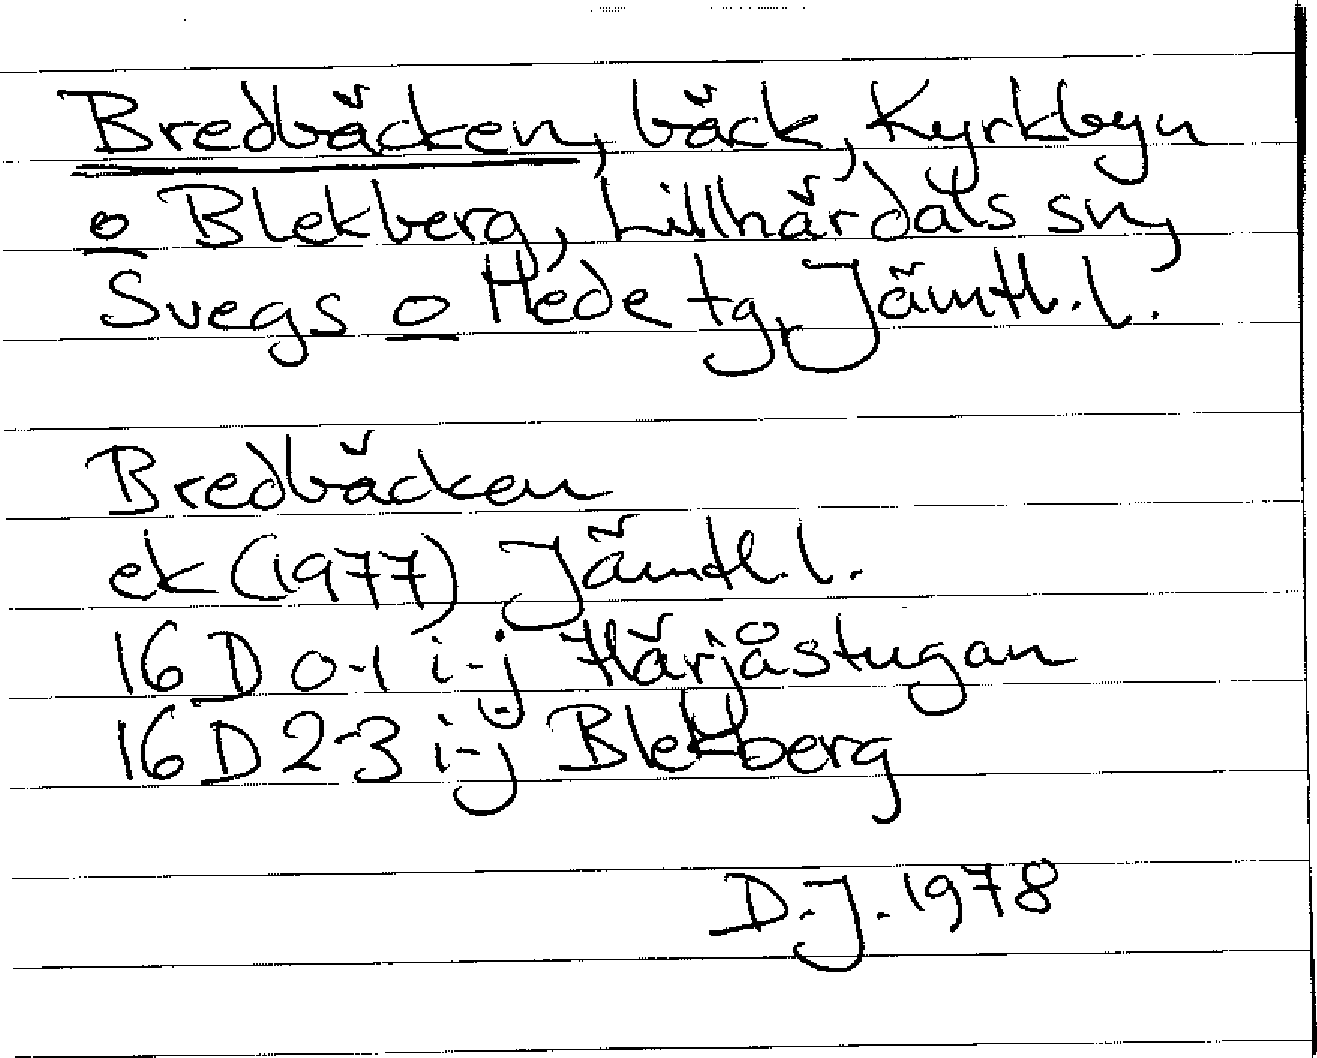 Bredbäcken, bäck, Kyrkbyn
o Blekberg, Lillhärdals sn,
Svegs o Hede tg, Jämtl. l.
Bredbäcken
ek (1977) Jämtl. l.
16 D 0-1 i-j Härjåstugan
16 D 2-3 i-j Blekberg
D.J. 1978